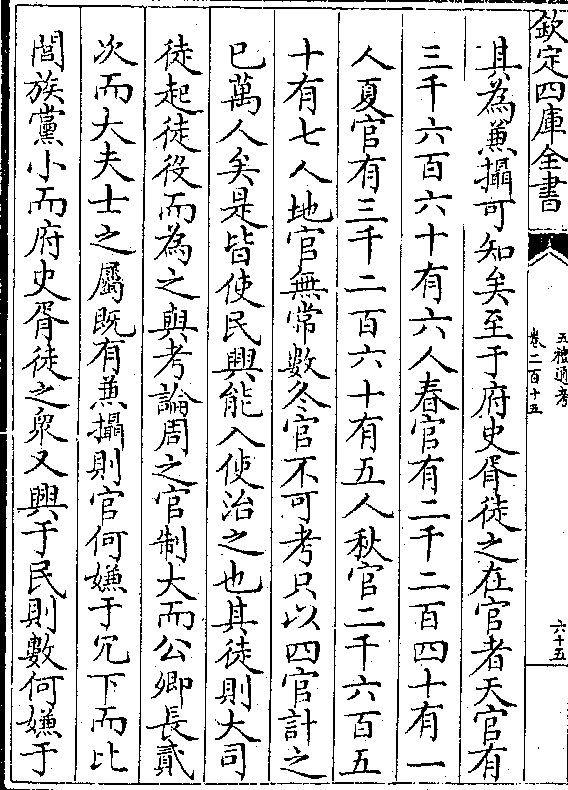 欽定四庫全書
五禮通考
卷二百十五
六十五
其為兼攝可知矣至于府史胥徒之在官者天官有
三千六百六十有六人春官有二千二百四十有一
人夏官有三千二百六十有五人秋官二千六百五
十有七人地官無常數冬官不可考只以四官計之
已萬人矣是皆使民興能入使治之也其徒則大司
徒起徒役而為之與考論周之官制大而公卿長貳
次而大夫士之屬既有兼攝則官何嫌于冗下而比
閭族黨小而府史胥徒之衆又興于民則數何嫌于